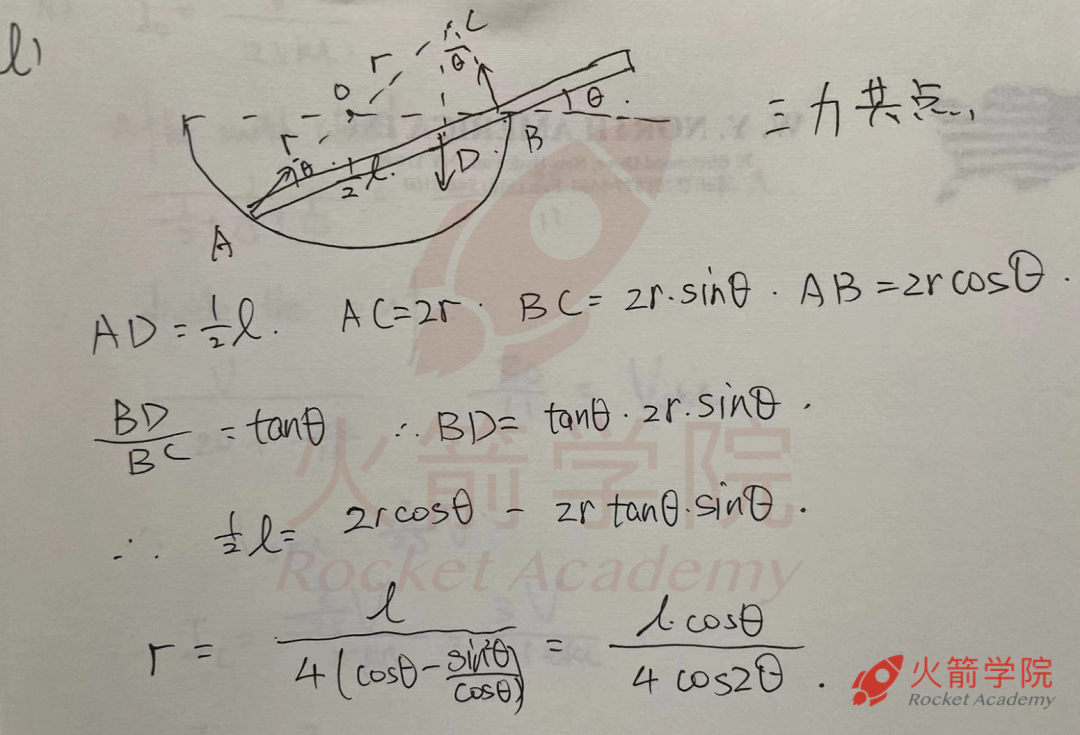 (1)
C
θ
r
O
θ
B
三力共点.,
r
θ
1/2 l.
D
A
AD = 1/2 l. AC=2r. BC = 2r·sinθ. AB = 2r cosθ.
BD/BC = tanθ ∴ BD = tanθ·2r·sinθ.
∴ 1/2 l = 2r cosθ - 2r tanθ·sinθ.
r = l / 4(cosθ - sin²θ/cosθ) = l·cosθ / 4 cos2θ.
火箭学院
Rocket Academy
火箭学院
Rocket Academy